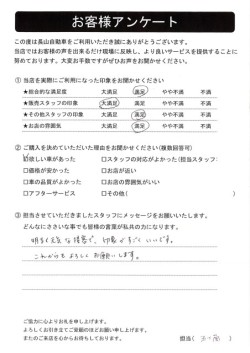 お客様アンケート
この度は長山自動車をご利用いただき誠にありがとうございます。
当店ではお客様の声を出来るだけ現場に反映し、より良いサービスを提供することに
努めております。大変お手数ですがぜひお声をお聞かせください。
① 当店を実際にご利用になった印象をお聞かせください
★総合的な満足度 大満足 満足 やや不満 不満
★販売スタッフの印象 大満足 満足 やや不満 不満
★その他スタッフの印象 大満足 満足 やや不満 不満
★お店の雰囲気 大満足 満足 やや不満 不満
② ご購入を決めていただいた理由をお聞かせください(複数回答可)
欲しい車があった □スタッフの対応がよかった(担当スタッフ:
□価格が安かった □お店が近い
□車の品質がよかった □お店の雰囲気がいい
□アフターサービス □その他( )
③ 担当させていただきましたスタッフにメッセージをお願いいたします。
どんなにささいな事でも皆様の言葉が私共の力になります。
明るく元気な接客で、印象がすごくいいです。
これからもよろしくお願いします。
ご協力に心よりお礼を申し上げます。
よろしくお引き立てご愛顧のほどお願い申し上げます。
またのご来店を心からお待ちしております。
担当( )